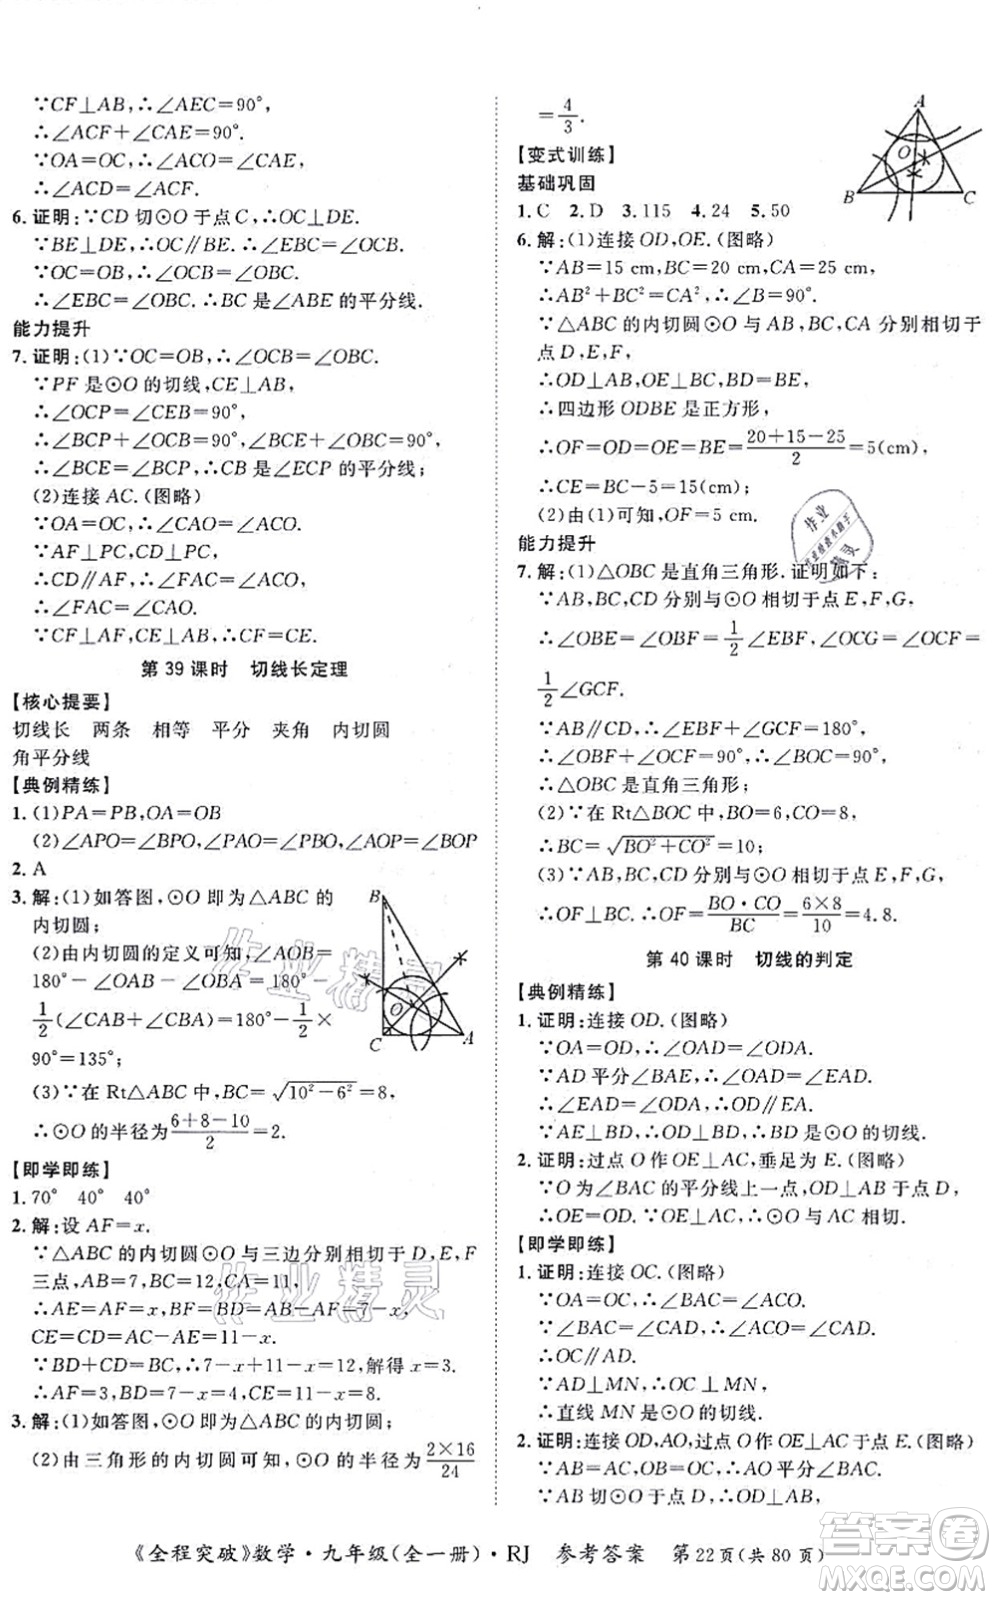 ∵CF⊥AB,∴∠AEC=90°,
∴∠ACF+∠CAE=90°.
∵OA=OC,∴∠CAE=∠ACD,
∴∠ACD=∠ACF.
6.证明:∵CD 切⊙O 于点 C,∴OC⊥DE.
∵BE⊥DE,∴OC∥BE,∴∠OCB=∠EBC.
∵OC=OB,∴∠OCB=∠OBC,
∴∠EBC=∠OBC.∴BC 是∠ABE 的平分线.
能力提升
7.证明:(1)∵OC=OB,∴∠OCB=∠OBC.
∵PF 是⊙O 的切线,CE⊥AB,
∴∠OCP=∠CEB=90°,
∴∠BCP+∠OCB=∠BCE+∠OBC=90°,
∴∠BCE=∠BCP,∴CB 是∠ECP 的平分线;
(2)连接 AC.(图略)
∵OA=OC,∴∠CAO=∠ACO.
∵AF⊥PC,OC⊥PC,
∴OC∥AF,∴∠FAC=∠ACO,
∴∠FAC=∠CAO.
∵CF⊥AF,CE⊥AB,∴CF=CE.
第 39 课时 切线长定理
【核心提要】
切线长 两条 相等 平分 夹角 内切圆
角平分线
【典例精练】
1.(1)PA=PB,OA=OB
(2)∠APO=∠BPO,∠PAO=∠PBO,∠AOP=∠BOP
2.A
3.解:(1)如答图,⊙O 即为△ABC 的
内切圆;
(2)由内切圆的定义可知,∠AOB=
180°-∠OAB-∠OBA=180°-
1/2(∠CAB+∠CBA)=180°-1/2×
90°=135°;
(3)∵在 Rt△ABC 中,BC=√(10²-6²)=8,
∴⊙O 的半径为(6+8-10)/2=2.
B
O
C
A
【即学即练】
1.70° 40° 40°
2.解:设 AF=x.
∵△ABC 的内切圆⊙O 与三边分别相切于 D,E,F
三点,AB=7,BC=12,CA=11,
∴AE=AF=x,BF=BD=AB-AF=7-x,
CE=CD=AC-AE=11-x.
∵BD+CD=BC,∴7-x+11-x=12,解得 x=3.
∴AF=3,BD=7-x=4,CE=11-x=8.
3.解:(1)如答图,⊙O 即为△ABC 的内切圆;
(2)由三角形的内切圆可知,⊙O 的半径为(2×16)/24
=4/3.
A
O
B
C
【变式训练】
基础巩固
1.C 2.D 3.115 4.24 5.50
6.解:(1)连接 OD,OE.(图略)
∵AB=15 cm,BC=20 cm,CA=25 cm,
∴AB²+BC²=CA²,∴∠B=90°.
∵△ABC 的内切圆⊙O 与 AB,BC,CA 分别相切于
点 D,E,F,
∴OD⊥AB,OE⊥BC,BD=BE,
∴四边形 ODBE 是正方形,
∴OF=OD=OE=BE=(20+15-25)/2=5(cm),
∴CE=BC-5=15(cm);
(2)由(1)可知,OF=5 cm.
能力提升
7.解:(1)△OBC 是直角三角形.证明如下:
∵AB,BC,CD 分别与⊙O 相切于点 E,F,G,
∴∠OBE=∠OBF=1/2∠EBF,∠OCG=∠OCF=
1/2∠GCF.
∵AB∥CD,∴∠EBF+∠GCF=180°,
∴∠OBF+∠OCF=90°,∴∠BOC=90°,
∴△OBC 是直角三角形;
(2)∵在 Rt△BOC 中,BO=6,CO=8,
∴BC=√(BO²+CO²)=10;
(3)∵AB,BC,CD 分别与⊙O 相切于点 E,F,G,
∴OF⊥BC,∴OF=(BO·CO)/BC=(6×8)/10=4.8.
第 40 课时 切线的判定
【典例精练】
1.证明:连接 OD.(图略)
∵OA=OD,∴∠OAD=∠ODA.
∵AD 平分∠EAB,∴∠EAD=∠OAD,
∴∠EAD=∠ODA,∴OD∥EA.
∵AE⊥EF,∴OD⊥EF,∴EF 是⊙O 的切线.
2.证明:过点 O 作 OE⊥AC,垂足为 E.(图略)
∵O 为∠BAC 的平分线上一点,OD⊥AB 于点 D,
∴OE=OD,∴⊙O 与 AC 相切.
【即学即练】
1.证明:连接 OC.(图略)
∵OA=OC,∴∠BAC=∠ACO.
∵∠BAC=∠CAM,∴∠CAM=∠ACO,
∴OC∥AM.
∵AD⊥MN,∴OC⊥MN,
∴直线 MN 是⊙O 的切线.
2.证明:连接 OD,AO,过点 O 作 OE⊥AC 于点 E.(图略)
∵AB=AC,OB=OC,∴AO 平分∠BAC.
∵AB 切⊙O 于点 D,∴OD⊥AB,
《全程突破》数学·九年级(全一册)·RJ 参考答案 第 22 页(共 80 页)
作业精灵
作业精灵
答案圈
MXQE.COM